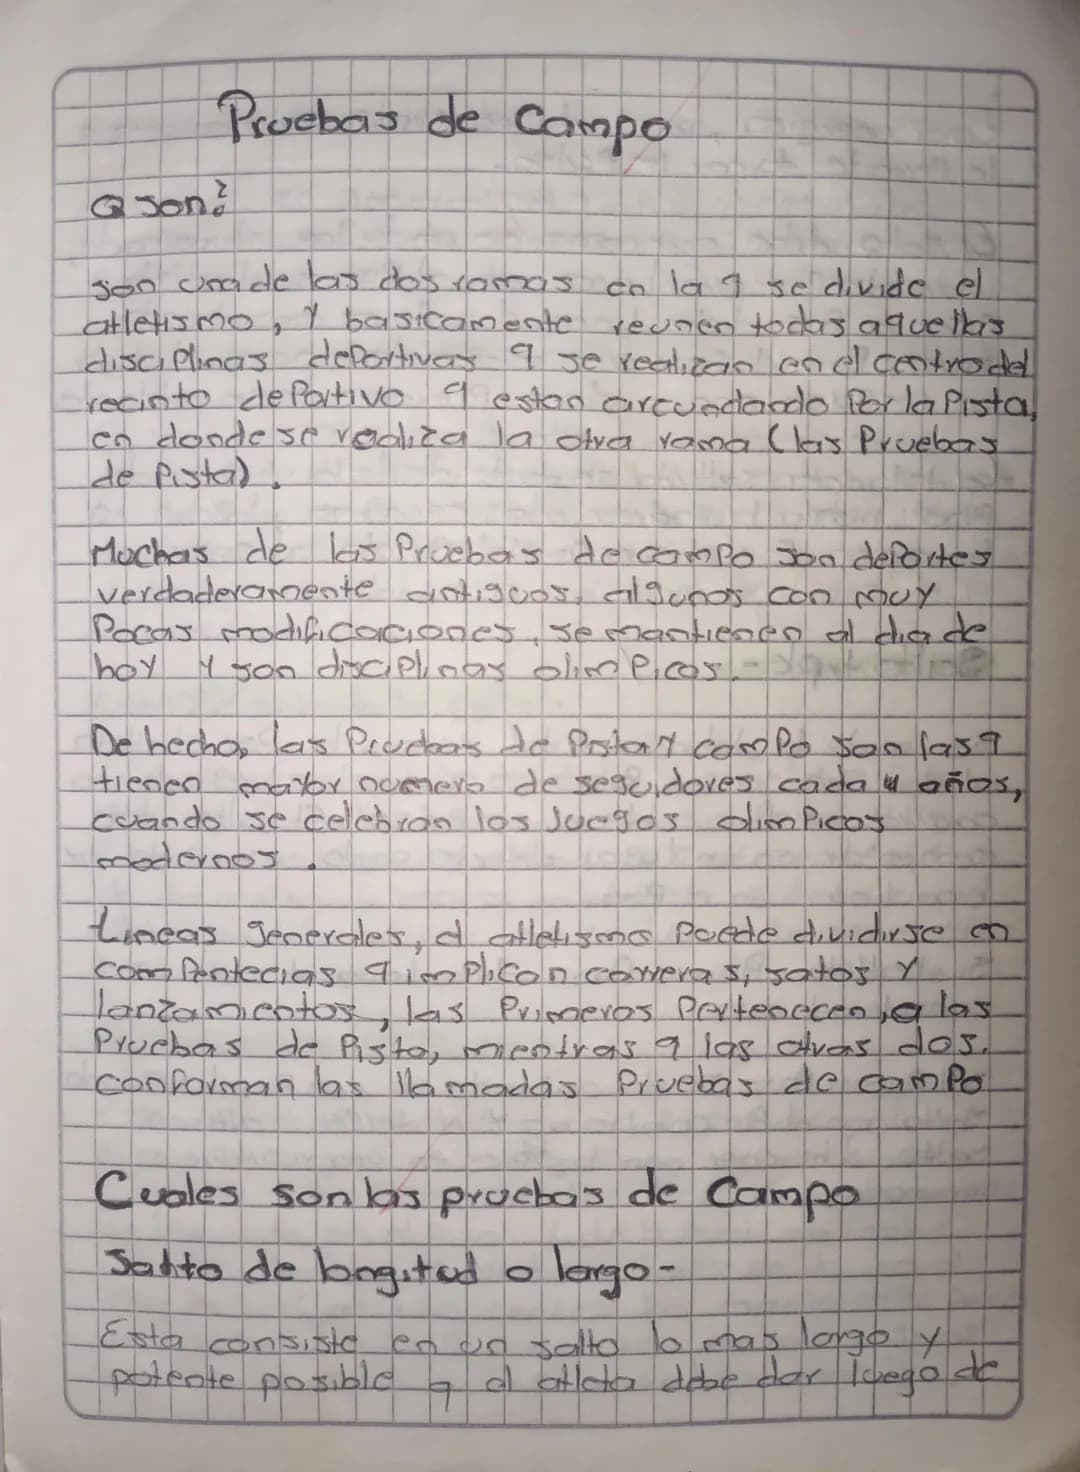 Pruebas de Campo
Q son?
son una de las dos ramas en la q se divide el
atletismo, y basicamente reunen todas aquellas
disciplinas deportivas q se realizan en el centro del
recinto deportivo q estan arcundando por la pista,
en donde se realiza la otra rama (las Pruebas
de Pista).
Muchas de las Pruebas de campo son deportes
verdaderamente antiguos, algunos con muy
Pocas modificaciones, se mantienen al dia de
hoy y son disciplinas olimpicas.
De hecho, las Pruebas de Pista y campo son las q
tienen mayor numero de seguidores cada 4 años,
cuando se celebran los Juegos olimpicos
modernos.
Lineas generales, el atletismo puede dividirse en
compentecias q implican carreras, satos y
lanzamientos, las Primeros Pertenecen, a las
Pruebas de Pista, mientras q las otras dos.
conforman las llamadas Pruebas de campo
Cuales son las pruebas de Campo
Salto de longitud o largo-
Esta consiste en un salto lo mas largo y
potente posible q el atleta debe dar luego de